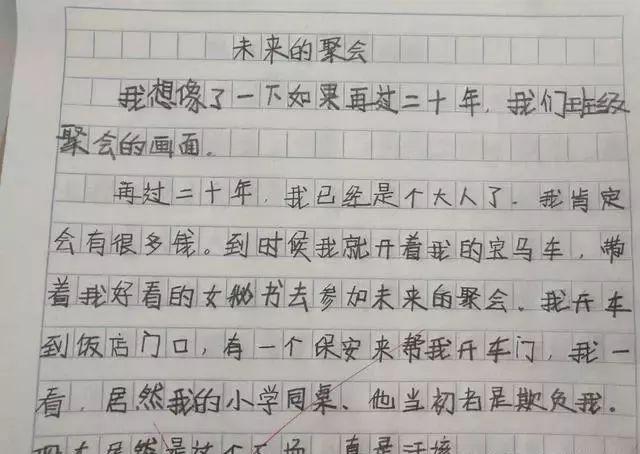 未来的聚会
我想像了一下如果再过二十年，我们班级
聚会的画面。
再过二十年，我已经是个大人了．我肯定
会有很多钱。到时候我就开着我的宝马车，带
着我好看的女秘书去参加未来的聚会。我开车
到饭店门口，有一个保安来帮我开车门，我一
看，居然我的小学同桌、他当初老是欺负我。
居然是这个下场，真是活该